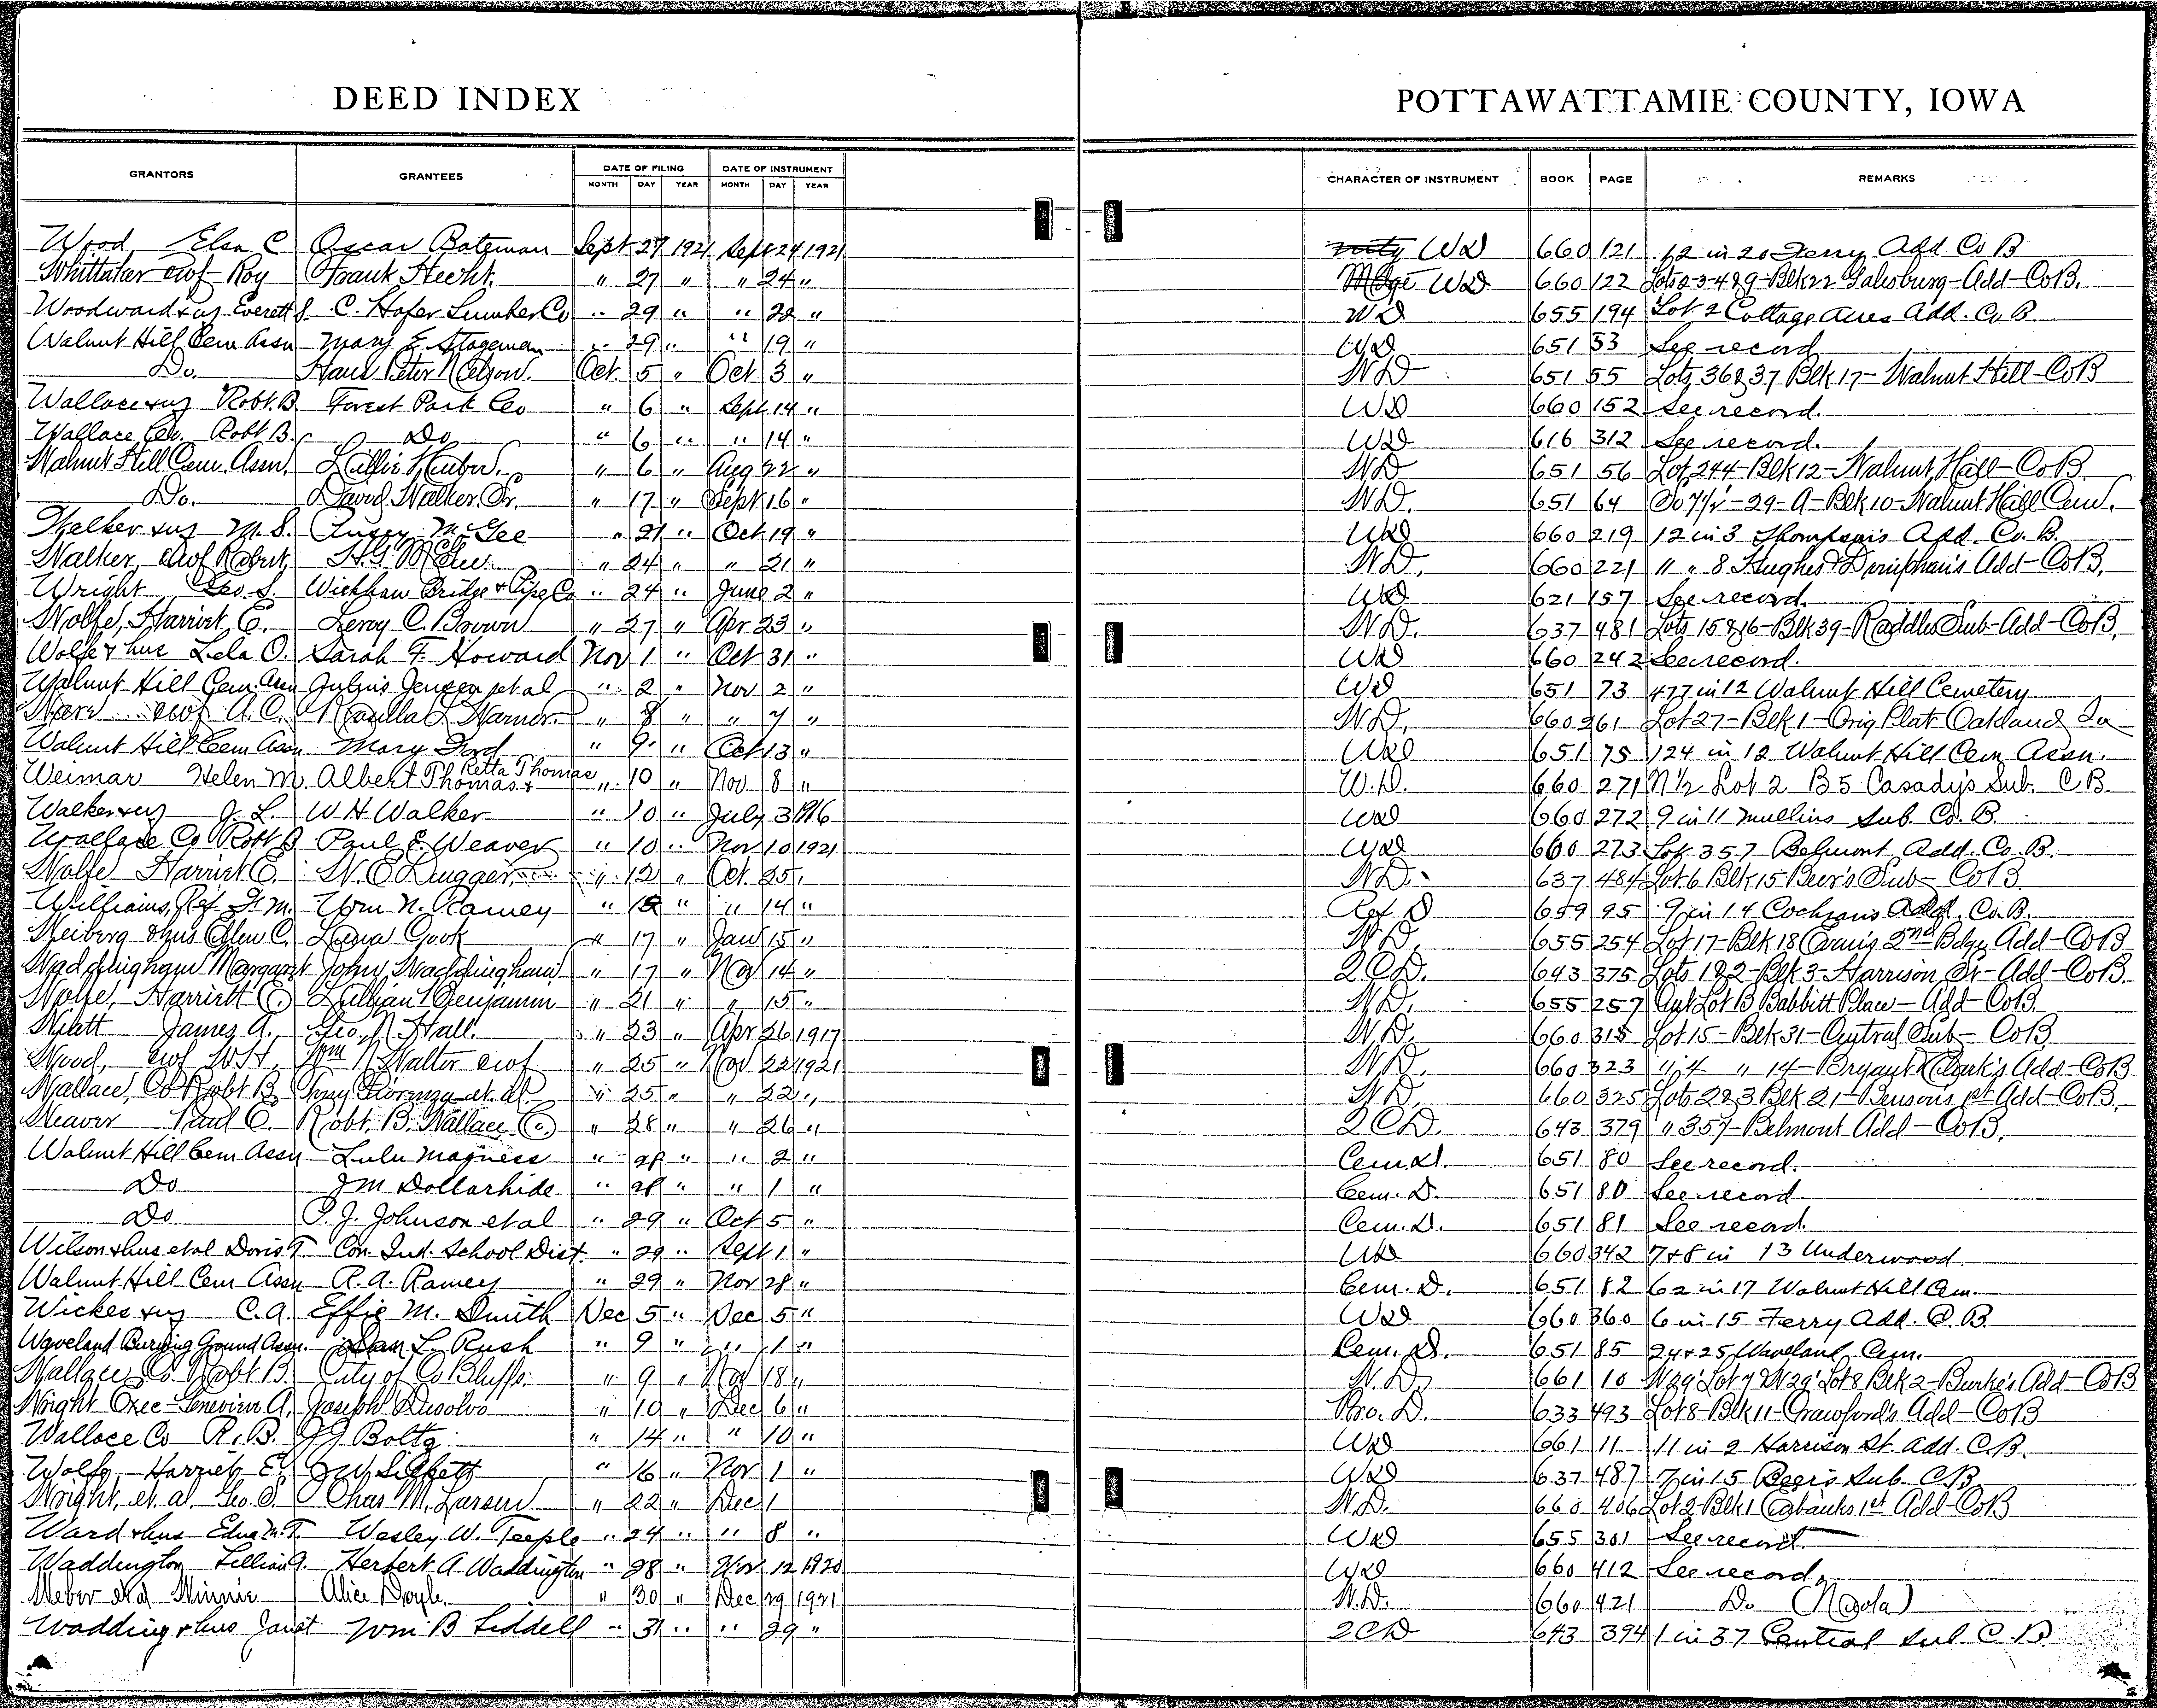 DEED INDEX
POTTAWATTAMIE COUNTY, IOWA
GRANTORS GRANTEES DATE OF FILING DATE OF INSTRUMENT CHARACTER OF INSTRUMENT BOOK PAGE REMARKS
MONTH DAY YEAR MONTH DAY YEAR
Wood, Elsa C Oscar Bateman Sept 27 1921 Sept 24 1921 WD 660 121 12 in 20 Ferry Add Co B
Whittaker ewf Roy Frank Hecht. " 27 " " 24 " WD 660 122 Lots 2-3-4 & 9-Blk 22 Galesburg-Add-Co B.
Woodward & ux Everett J. C. Hafer Lumber Co " 29 " " 28 " WD 655 194 Lot 2 Cottage Acres Add. Co B
Walnut Hill Cem Assn Mary E Stageman " 29 " " 19 " WD 651 53 See record
Do. Hans Peter Nelson. Oct 5 " Oct 3 " W.D. 651 55 Lots 36 & 37 Blk 17-Walnut Hill-Co B
Wallace & ux Robt. B. Forest Park Co " 6 " Sept 14 " WD 660 152 See record.
Wallace Co. Robt B. Do " 6 " " 14 " WD 616 312 See record.
Walnut Hill Cem. Assn. Lillie Huber. " 6 " Aug 22 " W.D. 651 56 Lot 244-Blk 12-Walnut Hill-Co B
Do. David Walker Sr. " 17 " Sept 16 " W.D. 651 64 So 7 1/2'-29-A-Blk 10-Walnut Hill Cem.
Whelker & ux M. S. McGee " 21 " Oct 19 " WD 660 219 12 in 3 Thompson's Add. Co. B.
Walker, ewf Robert, H. G. McGee. " 24 " " 21 " W.D. 660 221 11 " 8 Hughes & Doniphan's Add-Co B.
Wright Geo S. Wickham Bridge & Pipe Co " 24 " June 2 " WD 621 157 See record.
Wolfe, Harriet E. Leroy C. Brown " 27 " Apr 23 " W.D. 637 481 Lots 15 & 16-Blk 39-Riddles Sub-Add-Co B.
Wolfe & hus Lela O. Sarah F. Howard Nov 1 " Oct 31 " WD 660 242 See record.
Walnut Hill Cem. Assn Julius Jensen et al " 2 " Nov 2 " WD 651 73 477 in 12 Walnut Hill Cemetery
ewf A. C. Rozilla L Warner. " 8 " " 7 " W.D. 660 261 Lot 27-Blk 1-Orig Plat Oakland Ia
Walnut Hill Cem Assn Mary Ford " 9 " Oct 13 " WD 651 75 124 in 12 Walnut Hill Cem Assn.
Weimar Helen M. Albert Thomas & Retta Thomas " 10 " Nov 8 " W.D. 660 271 N 1/2 Lot 2 B 5 Casady's Sub. C B.
Walker & ux J. L. W H Walker " 10 " July 3 1916 WD 660 272 9 in 11 Mullins Sub. Co. B
Wallace Co Robt B Paul E. Weaver " 10 " Nov 10 1921 WD 660 273 Lot 357 Belmont Add. Co. B.
Wolfe Harriet E. W. E Dugger " 12 " Oct. 25 " W.D. 637 484 Lot 6 Blk 15 Beer's Sub-Co B
Williams, Ref F. M. Wm N. Ramey " 12 " " 14 " Ref D 659 95 9 in 14 Cochran's Add. Co. B.
Weiberg & hus Ellen C. Cook " 17 " Jan 15 " W.D. 655 254 Lot 17-Blk 18 Evans 2nd Bdge Add-Co B
Waddingham Margaret John Waddingham " 17 " Nov 14 " 2 C D. 643 375 Lots 1 & 2-Blk 3-Harrison St-Add-Co B.
Wolfe, Harriett E. Lillian Benjamin " 21 " " 15 " W.D. 655 257 Lot 13 Babbitt Place-Add-Co B.
Wilett James A. Geo. N Hall. " 23 " Apr 26 1917 W.D. 660 315 Lot 15-Blk 31-Central Sub-Co B
Wood, ewf W. H. Wm N Walter ewf " 25 " Nov 22 1921 W.D. 660 323 11 & 4 " 14-Bryant & Clark's Add-Co B
Wallace, Co Robt B Tony Fiorenza et. al " 25 " " 22 " W.D. 660 325 Lots 2 & 3 Blk 21-Benson's 1st Add-Co B.
Weaver Paul E. Robt. B. Wallace Co " 28 " " 26 " 2 C D. 643 379 " 357-Belmont Add-Co B.
Walnut Hill Cem Assn Lulu Magness " 28 " " 2 " Cem. D. 651 80 See record.
Do J M Dollarhide " 28 " " 1 " Cem. D. 651 80 See record
Do P. J. Johnson et al " 29 " Oct 5 " Cem. D. 651 81 See record.
Wilson & hus et al Doris T. Con. Ind. School Dist " 29 " Sept. 1 " WD 660 342 7 & 8 in 13 Underwood
Walnut Hill Cem Assn R. A. Ramey " 29 " Nov 28 " Cem. D. 651 82 62 in 17 Walnut Hill Cem.
Wickes & ux C. A. Effie M. Smith Dec 5 " Dec 5 " WD 660 360 6 in 15 Ferry Add. C. B.
Waveland Burying Ground Assn. Dan L. Rush " 9 " " 1 " Cem. D. 651 85 24 & 25 Waveland Cem.
Wallace Co Robt B. City of Co Bluffs. " 9 " Nov 18 " W.D. 661 10 W 29' Lot 7 & W 29' Lot 8 Blk 2-Burke's Add-Co B
Wright Exec-Genevieve A. Joseph Disalvo " 10 " Dec 6 " Pro. D. 633 493 Lot 8-Blk 11-Crawford's Add-Co B
Wallace Co R. B. J J Boltz " 14 " " 10 " WD 661 11 11 in 2 Harrison St. Add. C. B.
Wolfe, Harriet E. J W Silkett " 16 " Nov 1 " WD 637 487 7 in 15 Beers Sub. C B
Wright, et. al. Geo. S. Chas M. Larsen " 22 " Dec 1 W.D. 660 406 Lot 2-Blk 1 Eubanks 1st Add-Co B
Ward & hus Edna M. T. Wesley W. Teeple " 24 " " 8 " WD 655 301 See record.
Waddington Lillian G. Herbert A Waddington " 28 " Nov 12 1920 WD 660 412 See record,
Weber et al Minnie Alice Doyle. " 30 " Dec 29 1921 W.D. 660 421 Do (Neola)
Wadding & hus Janet Wm B Liddell " 31 " " 29 " 2 C D 643 394 1 in 37 Central Sub. C. B